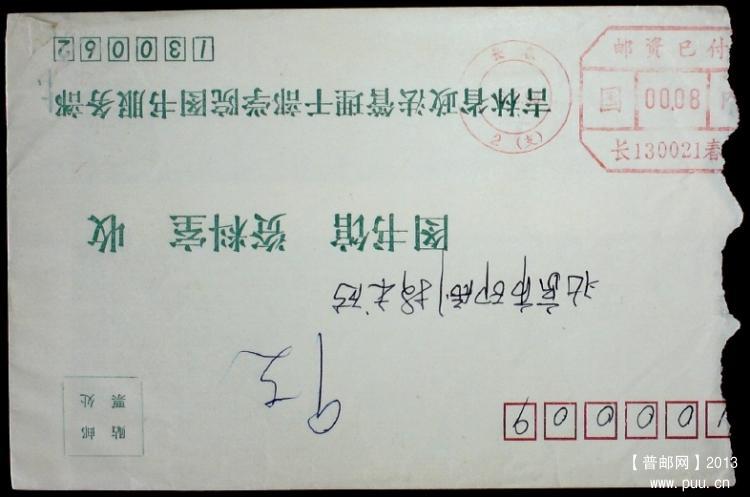 10000
贴邮
票处
北京市印刷
图书馆 资料室 收
吉林省政法管理干部学院图书服务部
130062
长春
2(支)
邮资已付
国 00.08
长130021春
【普邮网】2013
www.puu.cn